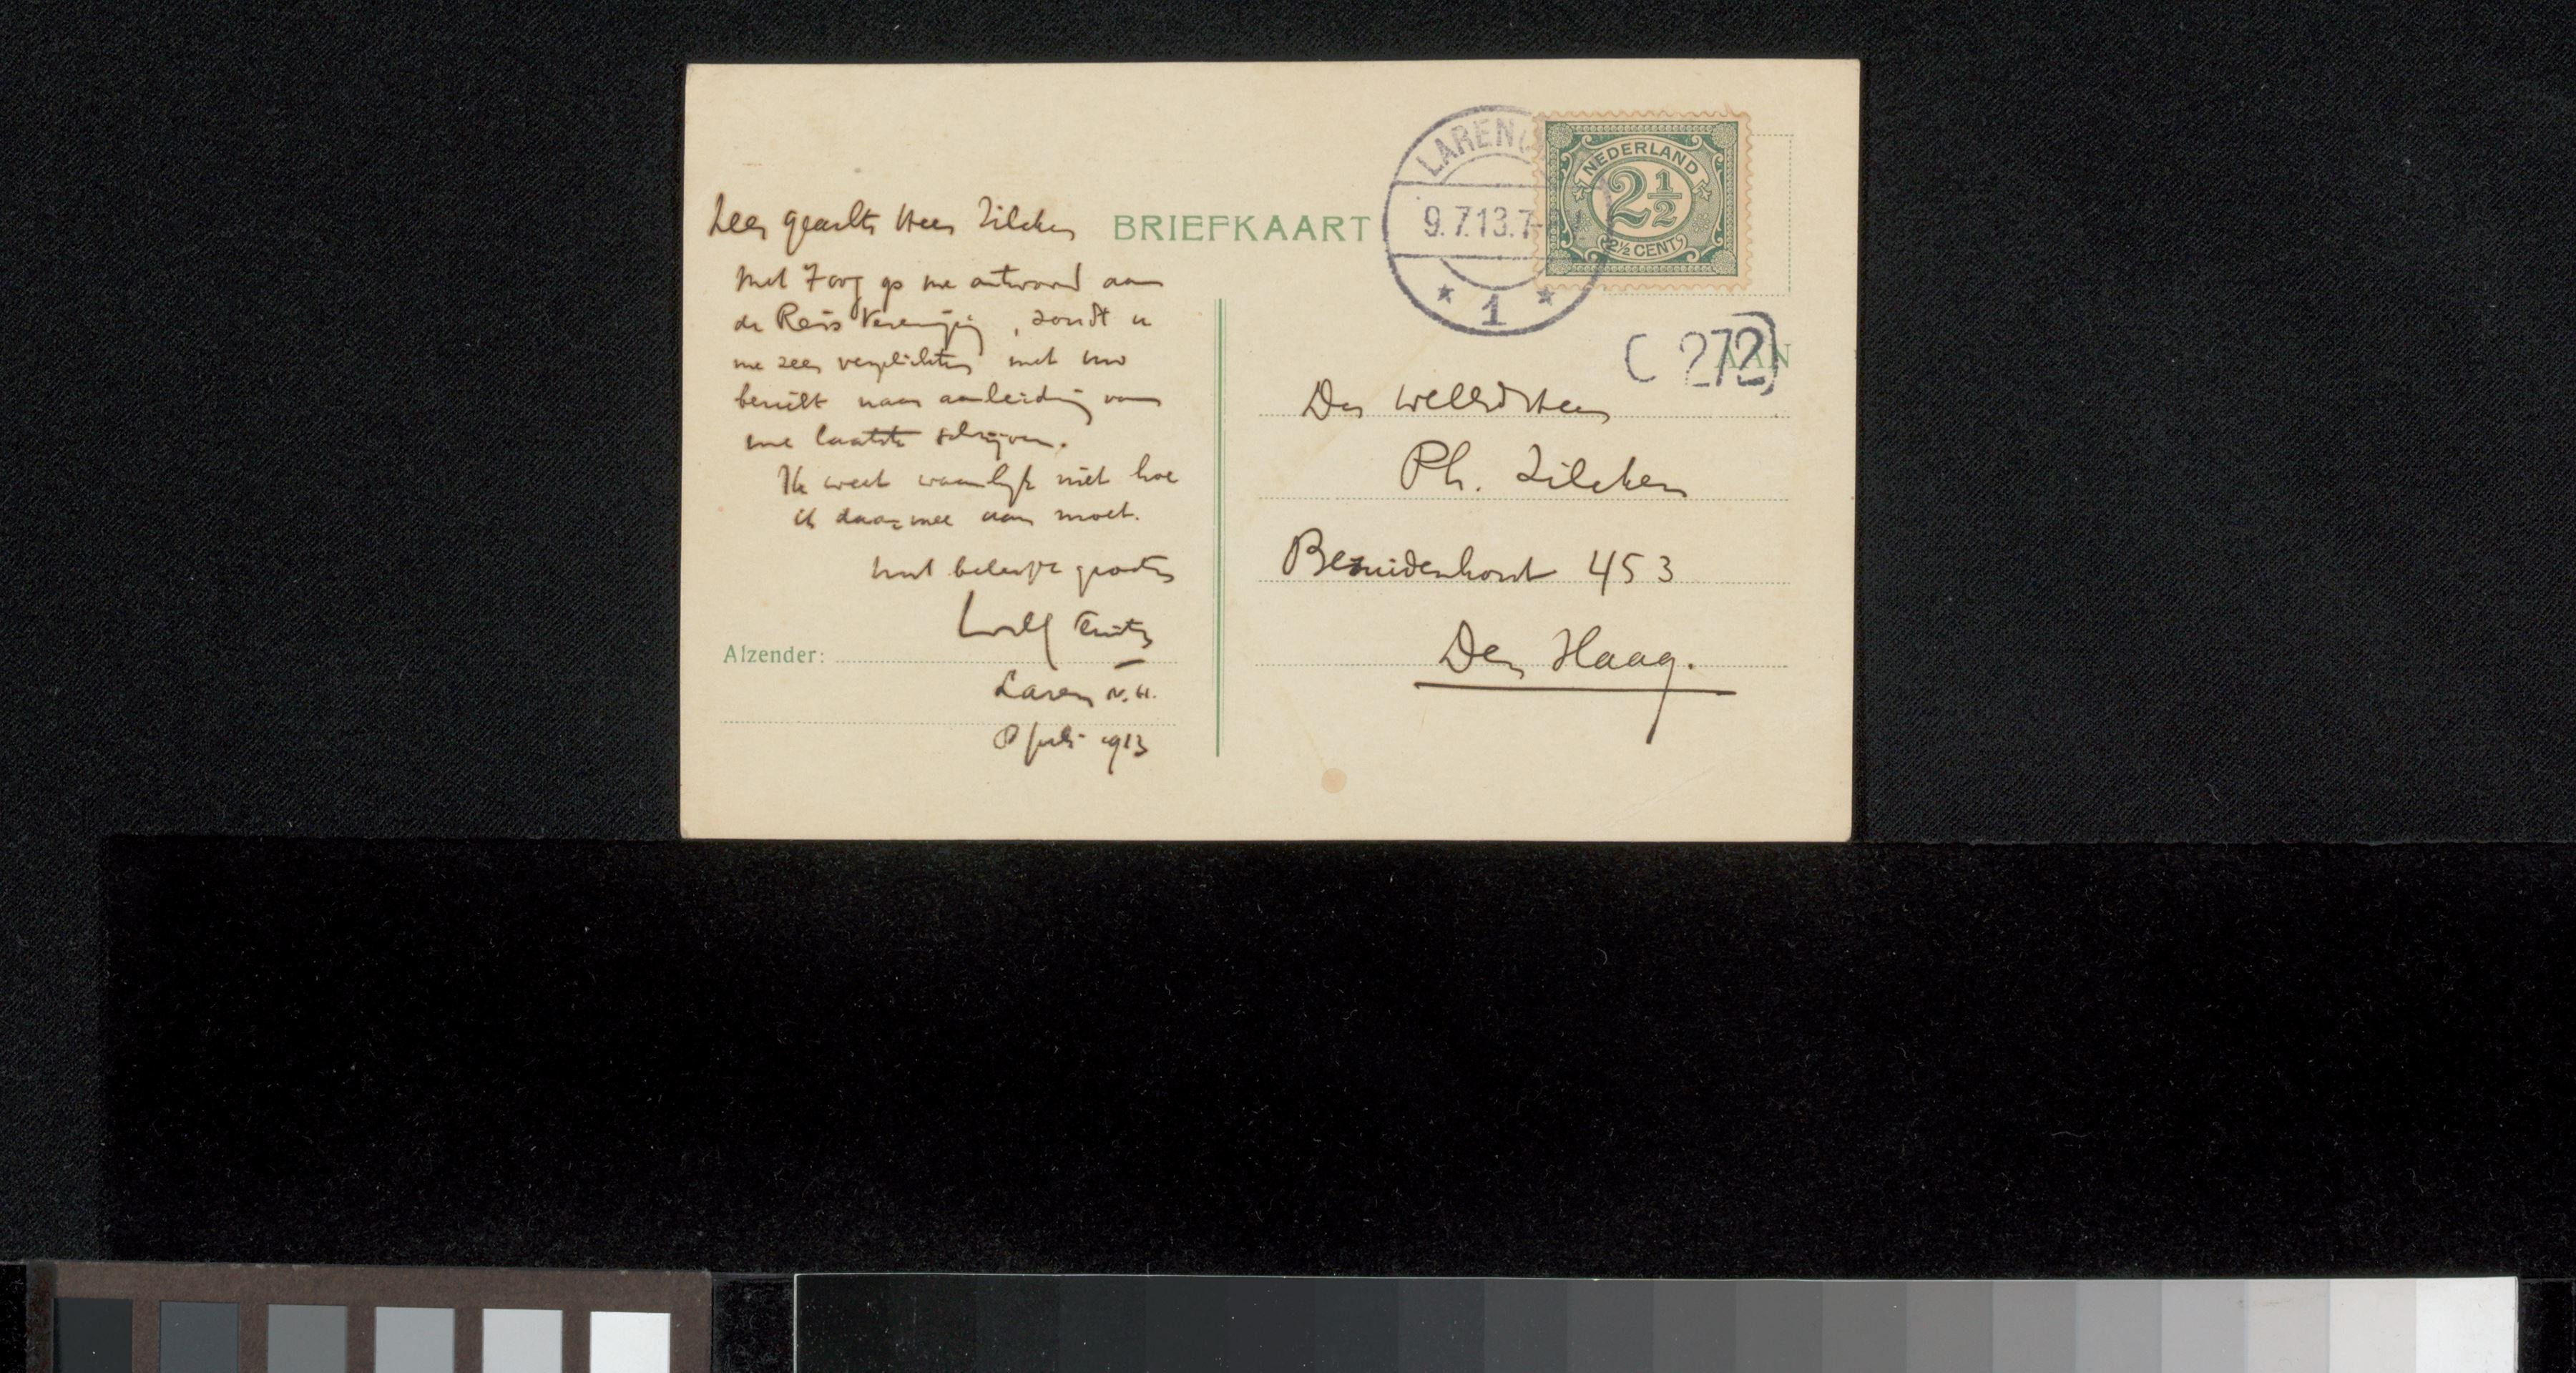 Zeer geachte Heer Zilcken
Met 't oog op me antwoord aan
de Reis Vereeniging, zoudt u
me zeer verplichten met uw
bericht naar aanleiding van
me laatste schrijven.
Ik weet waarlijk niet hoe
ik daarmee aan moet.
Met beleefde groeten
Laren N.H.
8 Juli 1913
BRIEFKAART
Afzender:
LAREN(
9.7.13.7-
* 1 *
NEDERLAND
2½
2½ CENT
C 272)
AAN
Den WelEdHeer
Ph. Zilcken
Bezuidenhout 453
Den Haag.